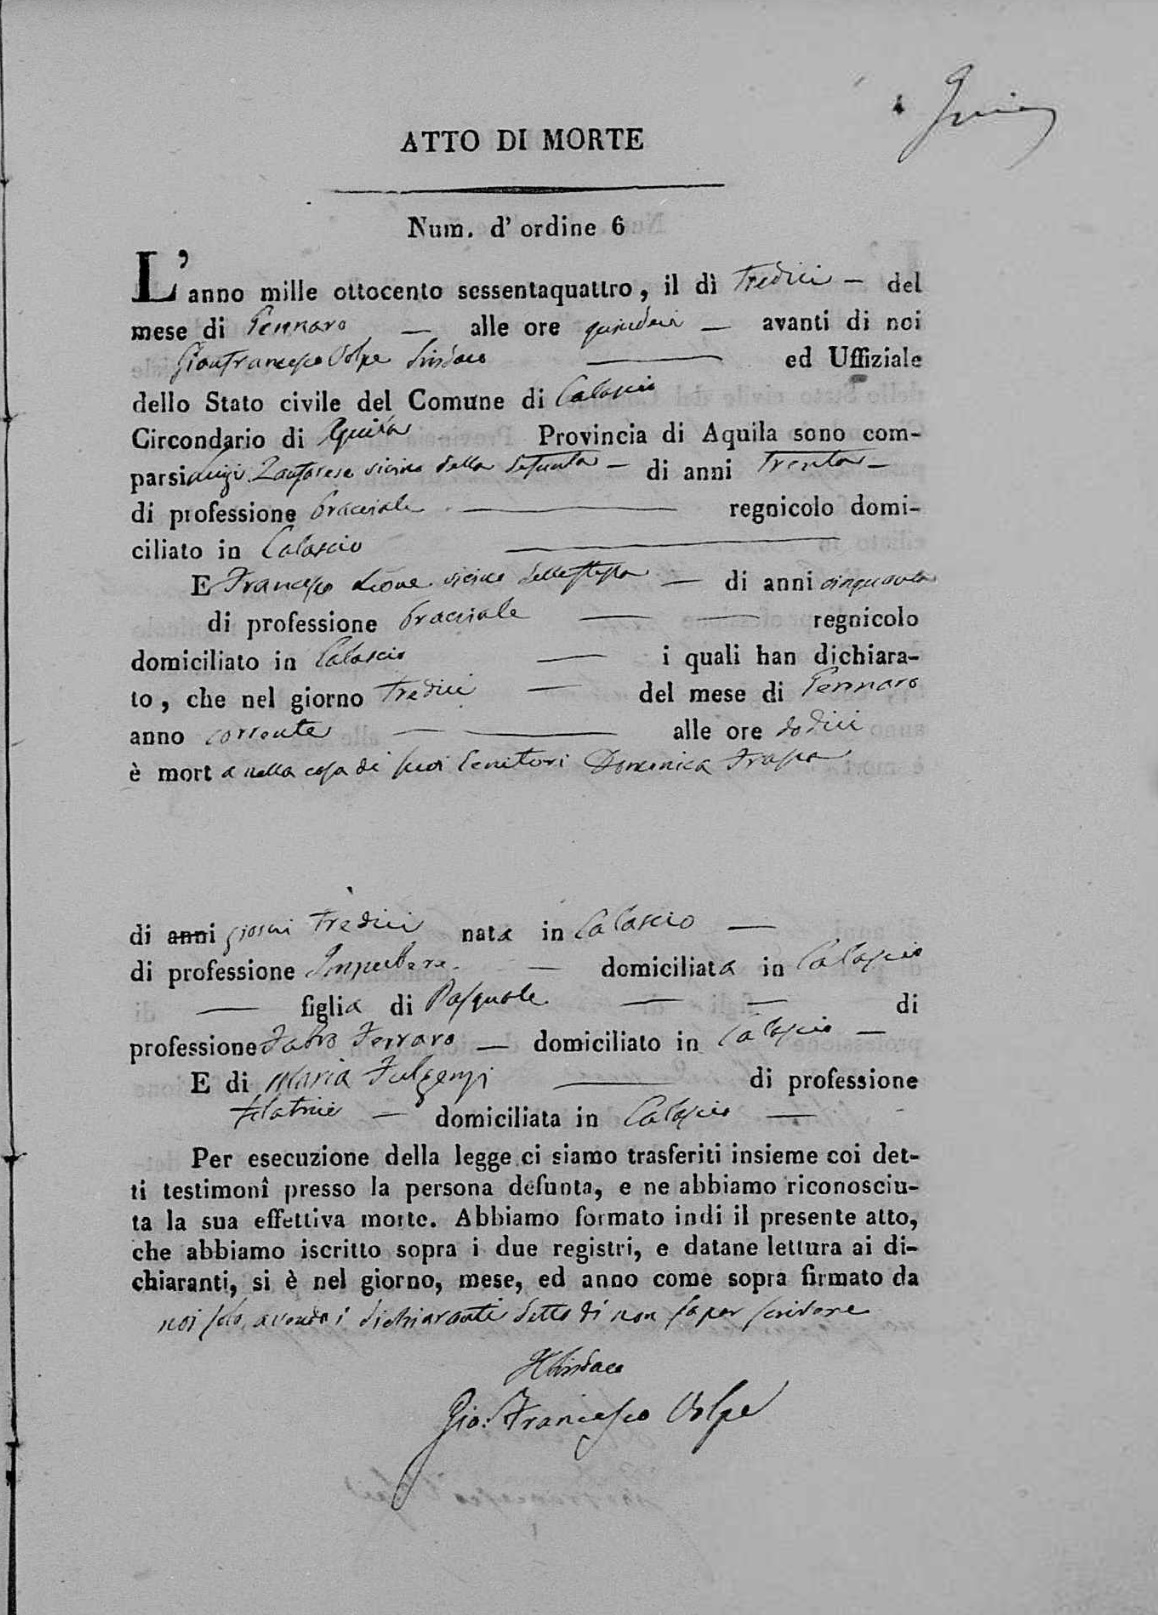 ATTO DI MORTE
Num. d' ordine 6
L'anno mille ottocento sessentaquattro, il dì tredici — del
mese di Gennaro — alle ore quindici — avanti di noi
Gianfrancesco Volpe Sindaco — ed Uffiziale
dello Stato civile del Comune di Calascio
Circondario di Provincia di Aquila sono com-
parsi Luigi vicino della defunta — di anni trenta —
di professione bracciale — regnicolo domi-
ciliato in Calascio —
E Francesco Leone vicino della stessa — di anni cinquanta
di professione bracciale — — regnicolo
domiciliato in Calascio — i quali han dichiara-
to, che nel giorno tredici — del mese di Gennaro
anno corrente — — alle ore dodici
è morta nella casa di suoi Genitori Domenica Frasca
di anni giorni tredici nata in Calascio —
di professione Impubere — domiciliata in Calascio
— figlia di Pasquale — — di
professione Fabro Ferraro — domiciliato in Calascio —
E di Maria Fulgenzi — di professione
filatrice — domiciliata in Calascio —
Per esecuzione della legge ci siamo trasferiti insieme coi det-
ti testimonî presso la persona defunta, e ne abbiamo riconosciu-
ta la sua effettiva morte. Abbiamo formato indi il presente atto,
che abbiamo iscritto sopra i due registri, e datane lettura ai di-
chiaranti, si è nel giorno, mese, ed anno come sopra firmato da
noi solo, avendo i dichiaranti detto di non saper scrivere
Il Sindaco
Gio: Francesco Volpe